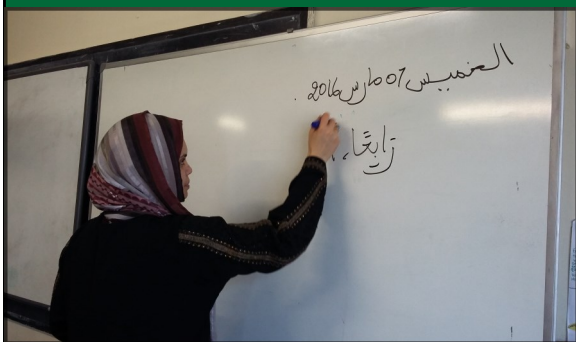 الخميس 07 مارس 2016 .
رابعًا،،